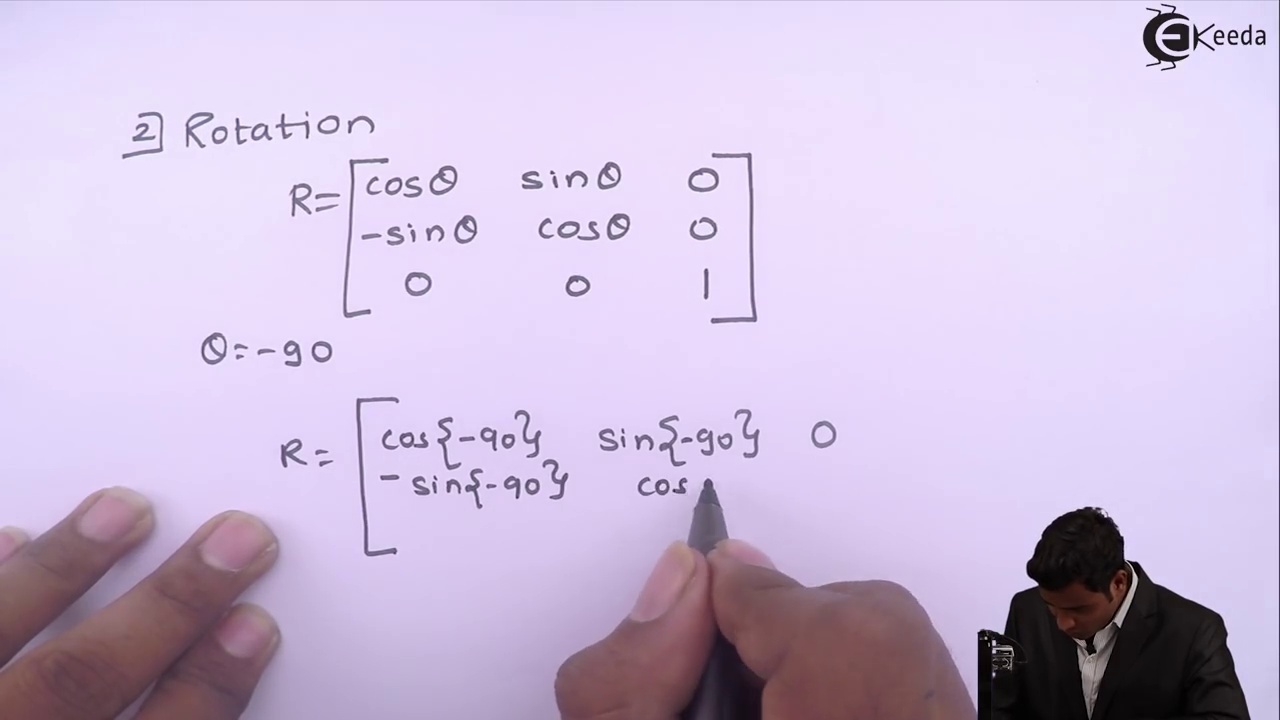 EKeeda
2 Rotation
R= [ cosθ sinθ 0
-sinθ cosθ 0
0 0 1 ]
θ=-90
R= [ cos{-90} sin{-90} 0
- sin{-90} cos